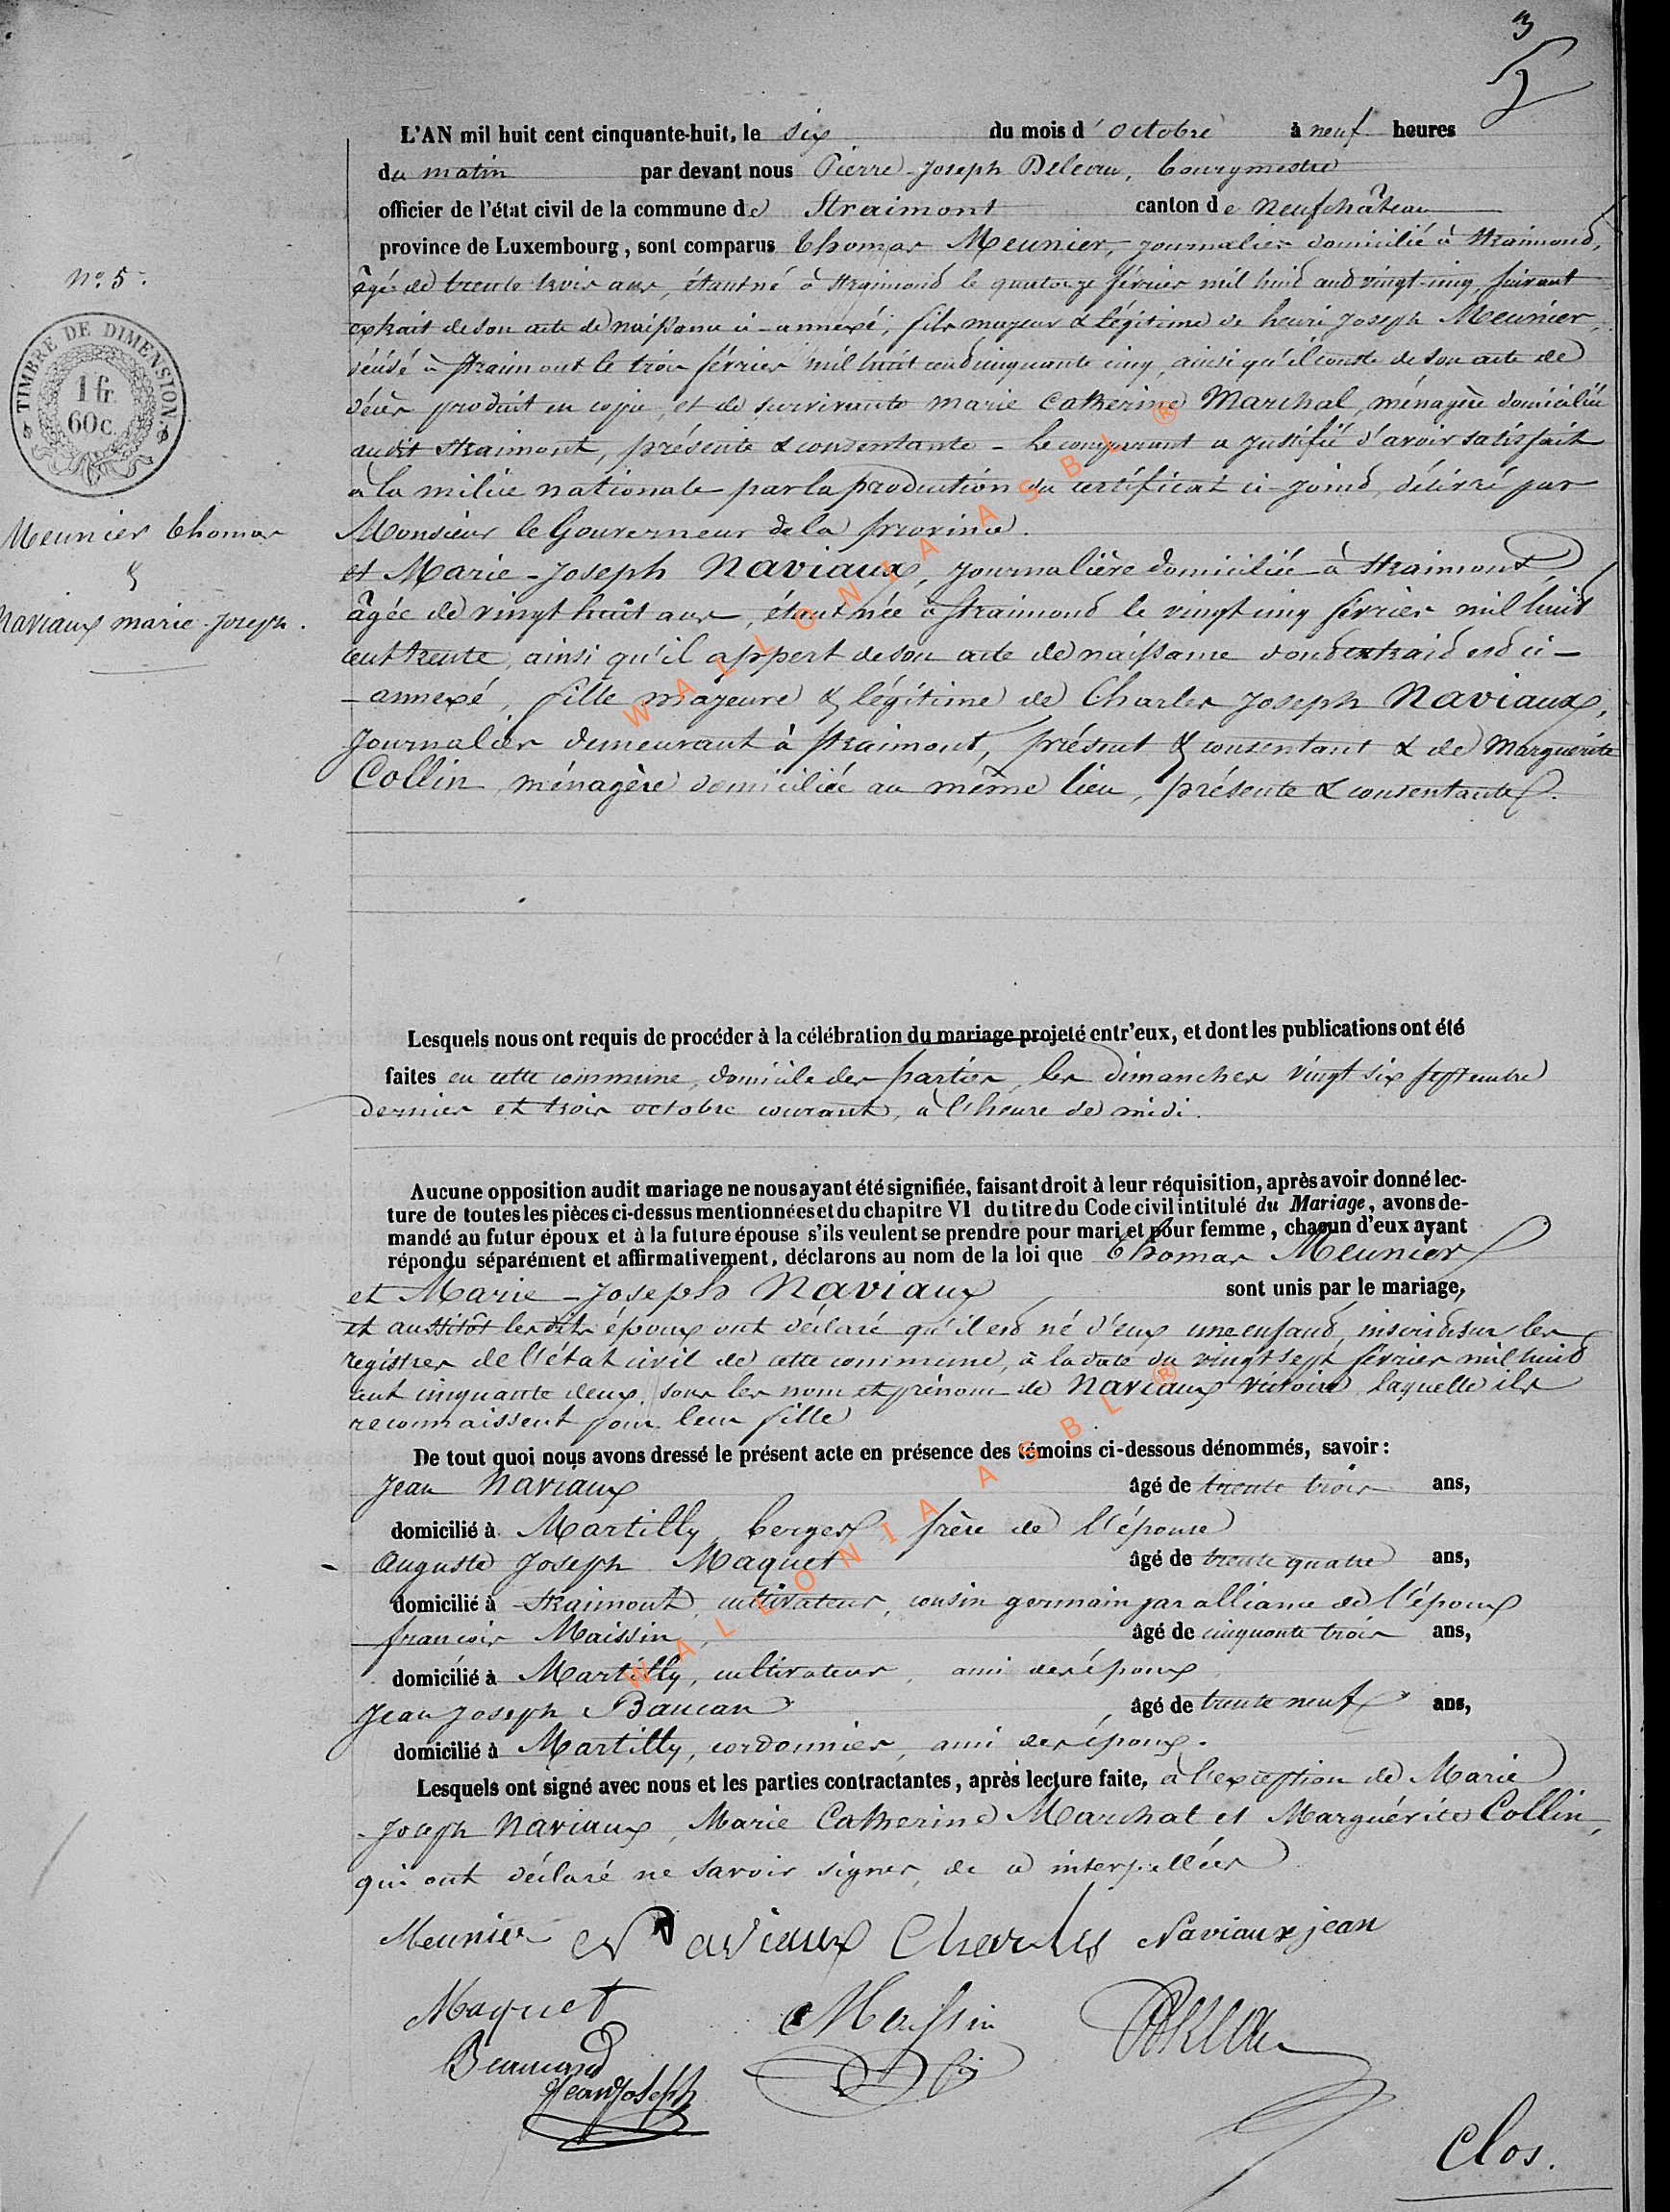 3
L'AN mil huit cent cinquante-huit, le six du mois d'octobre à neuf heures
du matin par devant nous Pierre-Joseph bourgmestre
officier de l'état civil de la commune de Straimont canton de Neufchâteau
province de Luxembourg, sont comparus Thomas Meunier, journalier domicilié à Straimond,
âgé de trente trois ans, étant né à Straimond le quatorze février mil huid cend vingt-cinq, suivant
extrait de son acte de naissance ci-annexé, fils majeur & légitime de henri Joseph Meunier,
décédé à Straimont le trois février mil huit cend cinquante cinq, ainsi qu'il conste de son acte de
décès produit en copie, et de survivante marie Catherine Marchal, ménagère domiciliée
audit Straimont, présente & consentante - Le comparant a justifié d'avoir satisfait
à la milice nationale par la production du certificat ci-joind, délivré par
Monsieur le Gouverneur de la province.
et Marie-Joseph Naviaux, journalière domiciliée à Straimont,
âgée de vingt huit ans, étant née à Straimond le vingt cinq février mil huid
cent trente, ainsi qu'il appert de son acte de naissance dond extraid esd ci-
-annexé, fille majeure & légitime de Charles Joseph Naviaux,
Journalier demeurant à Straimont, présent & consentant & de Marguérite
Collin ménagère domiciliée au même lieu, présente & consentante.
N° 5.
TIMBRE DE DIMENSION.
1 fr.
60c.
Meunier Thomas
&
Naviaux marie-Joseph.
Lesquels nous ont requis de procéder à la célébration du mariage projeté entr'eux, et dont les publications ont été
faites en cette commune, domicile des parties, les dimanches vingt six septembre
dernier et trois octobre courant, à l'heure de midi.
Aucune opposition audit mariage ne nous ayant été signifiée, faisant droit à leur réquisition, après avoir donné lec-
ture de toutes les pièces ci-dessus mentionnées et du chapitre VI du titre du Code civil intitulé du Mariage, avons de-
mandé au futur époux et à la future épouse s'ils veulent se prendre pour mari et pour femme, chacun d'eux ayant
répondu séparément et affirmativement, déclarons au nom de la loi que Thomas Meunier
et Marie-Joseph Naviaux sont unis par le mariage,
et aussitôt lesdits époux ont déclaré qu'il esd né d'eux une enfand, inscrid sur les
registres de l'état civil de cette commune, à la date du vingt sept février mil huid
cent cinquante deux, sous les nom et prénom de Naviaux victoire, laquelle ils
reconnaissent pour leur fille
De tout quoi nous avons dressé le présent acte en présence des témoins ci-dessous dénommés, savoir :
Jean Naviaux âgé de trente trois ans,
domicilié à Martilly berger, frère de l'épouse
Auguste Joseph Maquet âgé de trente quatre ans,
domicilié à Straimont, cultivateur, cousin germain par alliance de l'époux
françois Maissin, âgé de cinquante trois ans,
domicilié à Martilly, cultivateur, ami des époux
Jean Joseph Baucan âgé de trente neuf ans,
domicilié à Martilly, cordonnier, ami des époux.
Lesquels ont signé avec nous et les parties contractantes, après lecture faite, à l'exception de Marie
Joseph Naviaux, Marie Catherine Marchal et Marguérite Collin,
qui ont déclaré ne savoir signer, de ce interpellées
Meunier Naviaux Charles Naviaux jean
Maquet Maissin
Jean Joseph
Clos.
WALLONIA ASBL ®
WALLONIA ASBL ®